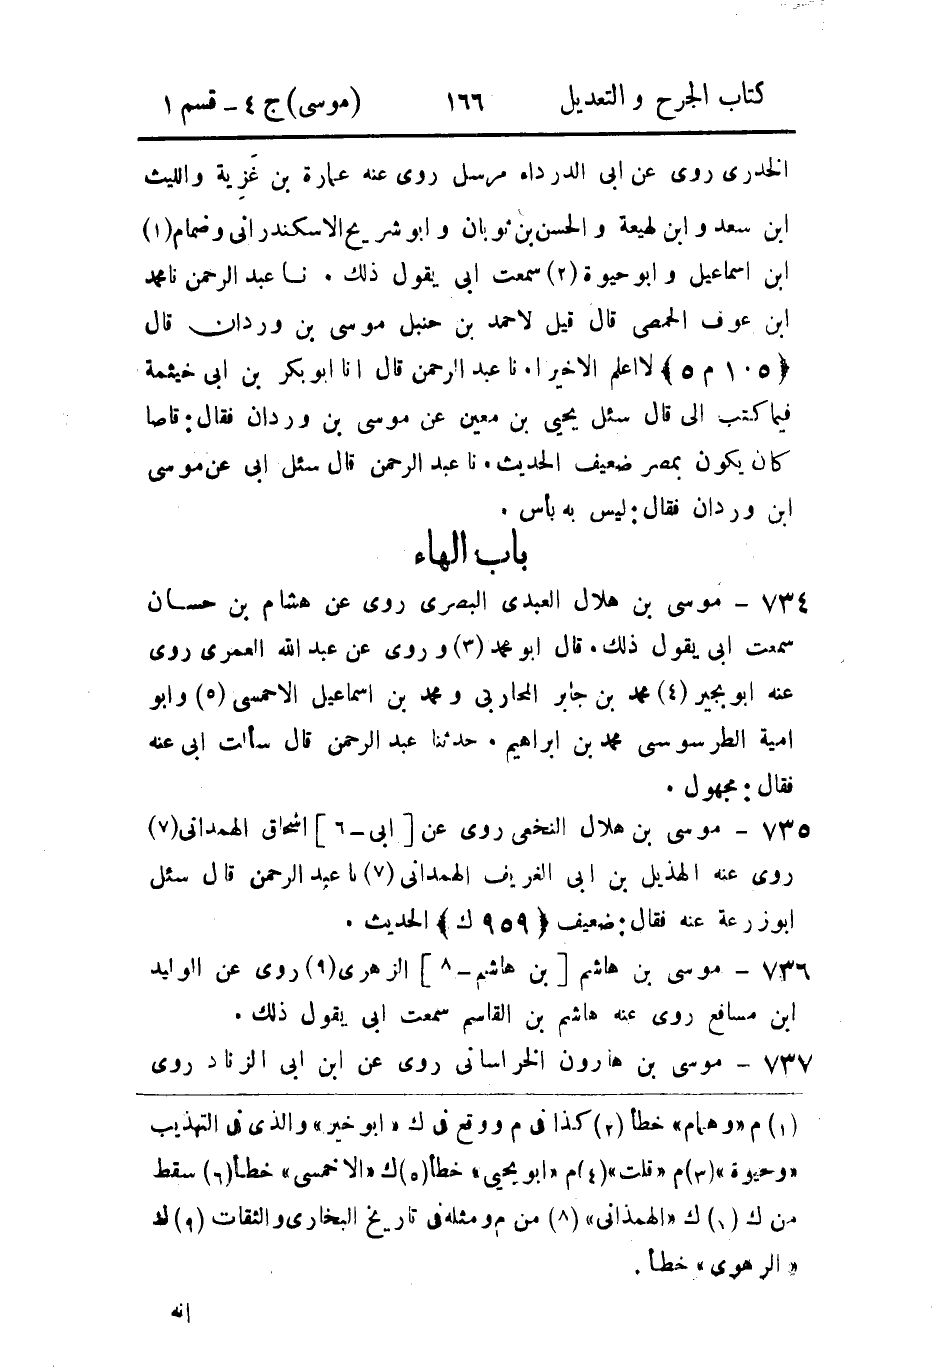 كتاب الجرح و التعديل ١٦٦ (موسى) ج ٤ - قسم ١
الخدرى روى عن ابى الدرداء مرسل روى عنه عمارة بن غَزِية والليث
ابن سعد و ابن لهيعة و الحسن بن ثوبان و ابو شريح الاسكندرانى و ضمام (١)
ابن اسماعيل و ابو حيوة (٢) سمعت ابى يقول ذلك . نا عبد الرحمن نا محمد
ابن عوف الحمصى قال قيل لاحمد بن حنبل موسى بن وردان قال
﴿١٠٥ م ٥﴾ لا اعلم الا خيرا . نا عبد الرحمن قال انا ابو بكر بن ابى خيثمة
فيما كتب الى قال سئل يحيى بن معين عن موسى بن وردان فقال: قاصا
كان يكون بمصر ضعيف الحديث . نا عبد الرحمن قال سئل ابى عن موسى
ابن وردان فقال: ليس به بأس .
باب الهاء
٧٣٤ - موسى بن هلال العبدى البصرى روى عن هشام بن حسان
سمعت ابى يقول ذلك . قال ابو محمد (٣) و روى عن عبد الله العمرى روى
عنه ابو بجير (٤) محمد بن جابر المحاربى و محمد بن اسماعيل الاحمسى (٥) وابو
امية الطرسوسى محمد بن ابراهيم . حدثنا عبد الرحمن قال سألت ابى عنه
فقال: مجهول .
٧٣٥ - موسى بن هلال النخعى روى عن [ ابى - ٦ ] اسحاق الهمدانى (٧)
روى عنه الهذيل بن ابى الغريف الهمدانى (٧) نا عبد الرحمن قال سئل
ابو زرعة عنه فقال: ضعيف ﴿٩٥٩ ك﴾ الحديث .
٧٣٦ - موسى بن هاشم [ بن هاشم - ٨ ] الزهرى (٩) روى عن الوليد
ابن مسافع روى عنه هاشم بن القاسم سمعت ابى يقول ذلك .
٧٣٧ - موسى بن هارون الخراسانى روى عن ابن ابى الزناد روى
(١) م «وهمام» خطأ (٢) كذا فى م ووقع فى ك «ابو خير» والذى فى التهذيب
«وحيوة» (٣) م «قلت» (٤) م «ابو يحيى» خطأ (٥) ك «الاخمسى» خطأ (٦) سقط
من ك (٧) ك «الهمذانى» (٨) من م ومثله فى تاريخ البخارى والثقات (٩) ك
«الرهوى» خطأ .